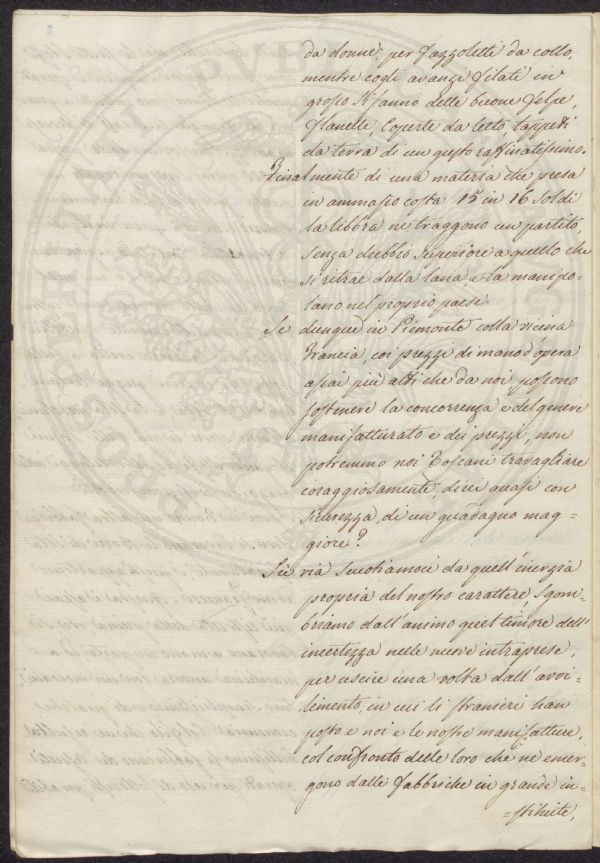 da donne, per Fazzoletti da collo,
mentre cogli avanzi filati in
grosso si fanno delle buone Felpe,
Flanelle, Coperte da letto, tappeti
da terra di un gusto raffinatissimo.
Finalmente di una materia che presa
in ammasso costa 15 in 16 Soldi
la libbra ne traggono un partito,
senza dubbio superiore a quello che
si ritrae dalla lana, e la manipo-
lano nel proprio paese.
Se dunque in Piemonte colla vicina
Francia, coi prezzi di mano d'opera
assai più alti che da noi possono
sostenere la concorrenza e del genere
manifatturato e dei prezzi, non
potremmo noi Toscani travagliare
coraggiosamente, direi quasi con
sicurezza, di un guadagno mag=
giore?
Su via scuotiamoci da quell'inerzia
propria del nostro carattere, sgom-
briamo dall'animo quel timore dell'
incertezza nelle nuove intraprese,
per uscire una volta dall'avvi-
limento, in cui li stranieri han
posto e noi e le nostre manifatture,
col confronto delle loro che ne emer-
gono dalle Fabbriche in grande in-
=stituite,